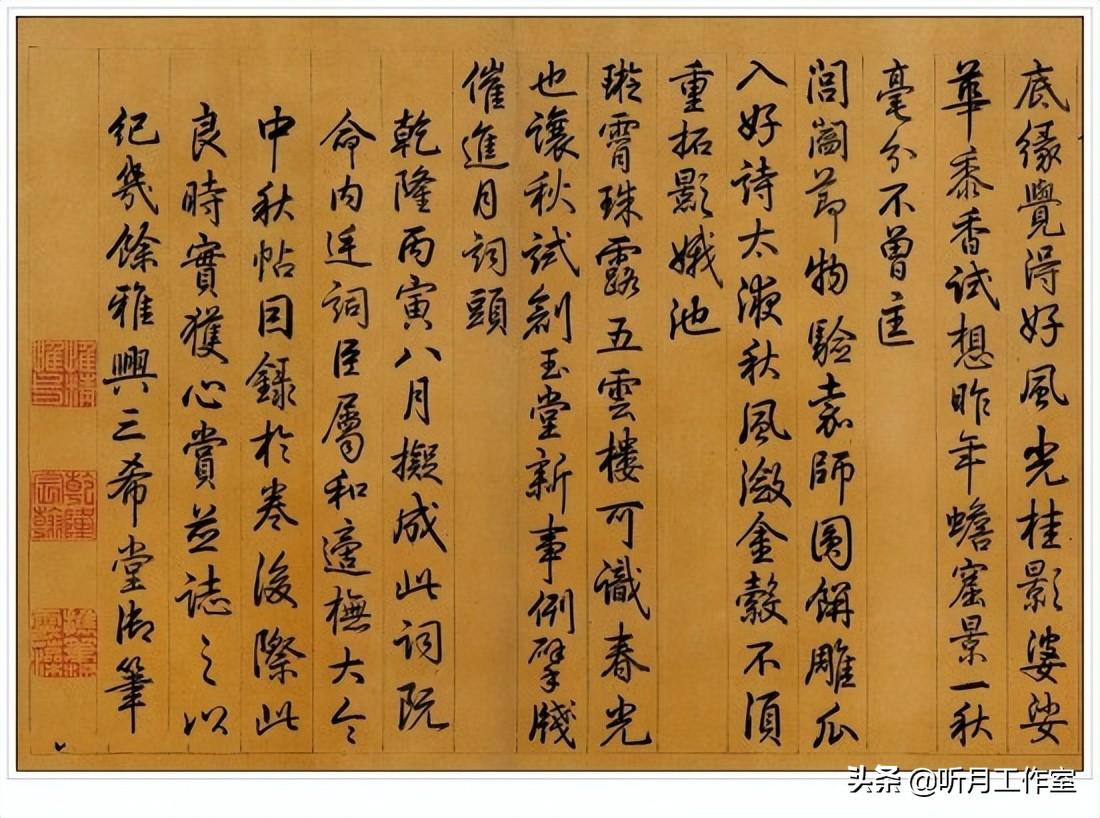 底緣覺得好風光桂影婆娑
華黍香試想昨年蟾窟景一秋
毫分不曾差
閶闔節物驗嘉師圓餅雕瓜
入好詩太液秋風瀲金縠不須
重拓影娥池
璇霄珠露五雲樓可識春光
也讓秋試創玉堂新事例擘牋
催進月詞頭
乾隆丙寅八月擬成此詞既
命內廷詞臣屬和適撫大令
中秋帖因錄於卷後際此
良時實獲心賞並誌之以
紀幾餘雅興三希堂御筆
乾隆宸翰
头条 @听月工作室